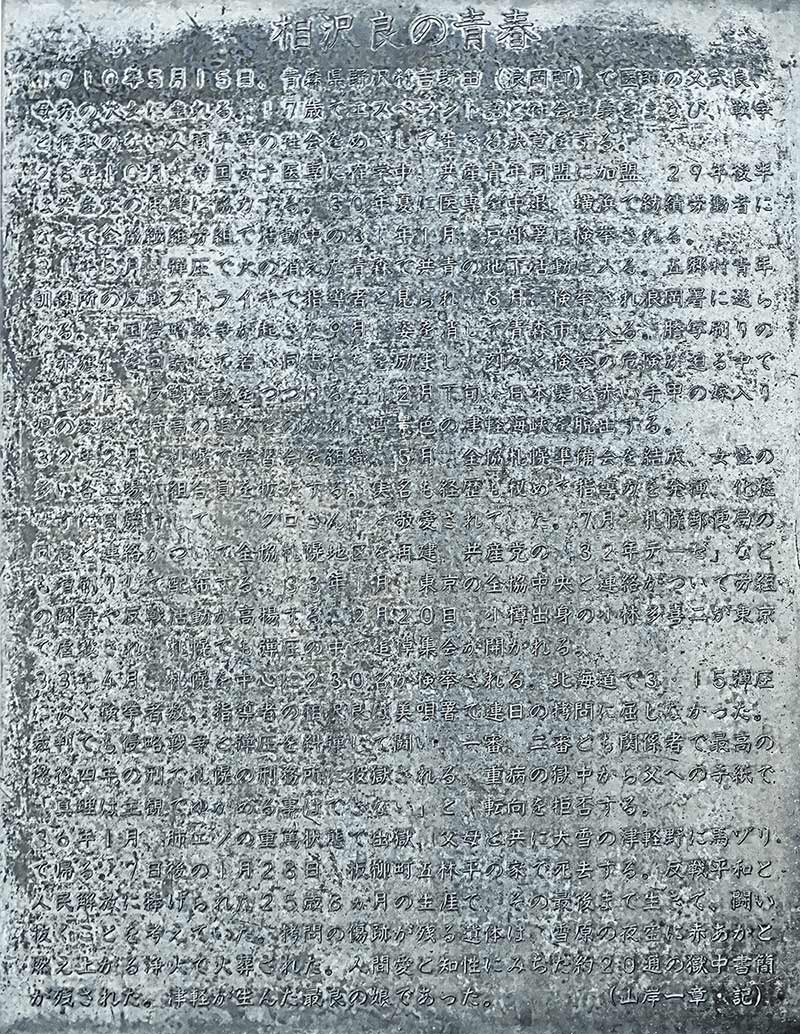 相沢良の青春
1910年5月15日、青森県野沢村吉野田（浪岡町）で医師の父
の次女に生れる。17歳でエスペラント語と社会主義をまなび、戦争
と搾取のない人間平等の社会をめざして生きる決意をする。
28年10月、帝国女子医専に在学中、共産青年同盟に加盟、29年後半
は共産党の再建に協力する。30年夏に医専を中退、横浜で紡績労働者に
なって全協繊維労組で活動中の31年1月、戸部署に検挙される。
31年5月、弾圧で火の消えた青森で共青の地下活動に入る。五郷村青年
訓練所の反戦ストライキで指導者と見られ、8月に検挙され浪岡署に送ら
れる。中国侵略戦争が起きた9月、姿を消して青森市に入る。謄写刷りの
を回読して若い同志たちを励まし、刻々と検挙の危険が迫る中で
3ヶ月、反戦活動をつづける。12月下旬、日本髪と赤い手甲の嫁入り
の変装で特高の追及をのがれ、雪景色の津軽海峡を脱出する。
32年2月、札幌で学習会を組織、5月、全協札幌準備会を結成、女性の
多い各工場に組合員を拡大する。実名も経歴も秘めて指導力を発揮、化粧
せずに日焼けして、「クロさん」と敬愛されていた。7月、札幌郵便局の
同志と連絡がついて全協札幌地区を再建、共産党の「32年テーゼ」など
も増刷りして配布する。33年1月、東京の全協中央と連絡がついて労組
の闘争や反戦活動が高揚する。2月20日、小樽出身の小林多喜二が東京
で虐殺され、札幌でも弾圧の中で追悼集会が開かれる。
33年4月、札幌を中心に230名が検挙される。北海道で3・15弾圧
に次ぐ検挙者数。指導者の相沢良は美唄署で連日の拷問に屈しなかった。
裁判でも侵略戦争と弾圧を糾弾して闘い、一審、二審とも関係者で最高の
懲役四年の刑で札幌の刑務所に投獄される。重病の獄中から父への手紙で
「真理は主観でゆがめる事はできない」と、転向を拒否する。
36年1月、肺エソの重篤状態で出獄、父母と共に大雪の津軽野に馬ゾリ
で帰る。7日後の1月28日、板柳町五林平の家で死去する。反戦平和と
人民解放に捧げられた25歳8か月の生涯で、その最後まで生きて、闘い
抜くことを考えていた。拷問の傷跡が残る遺体は、雪原の夜空に赤あかと
燃え上がる浄火で火葬された。人間愛と知性にみちた約20通の獄中書簡
が残された。津軽が生んだ最良の娘であった。（山岸一章・記）